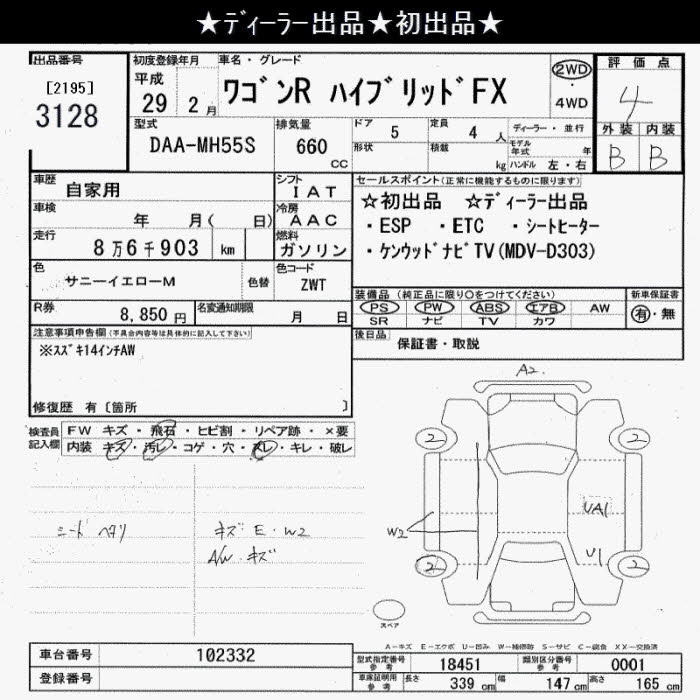 ★ディーラー出品★初出品★
出品番号
[2195]
3128
初度登録年月
平成
29 2 月
車名・グレード
ワゴンR ハイブリッドFX
2WD
・
4WD
評価点
4
型式
DAA-MH55S
排気量
660
CC
ドア
5
定員
4 人
形状
積載
kg
ディーラー・並行
モデル年式 年
ハンドル 左・右
外装 内装
B B
車歴
自家用
シフト
IAT
車検
年 月( 日)
冷房
AAC
走行
8万6千903 km
燃料
ガソリン
セールスポイント(正常に機能するものに限ります)
☆初出品 ☆ディーラー出品
・ESP ・ETC ・シートヒーター
・ケンウッドナビTV(MDV-D303)
色
サニーイエローM
色替
色コード
ZWT
R券
8,850 円
名変通知期限
月 日
装備品(純正品に限り○をつけてください)
PS PW ABS エアB AW
SR ナビ TV カワ
新車保証書
有・無
後日品
保証書・取説
注意事項申告欄(不具合内容等は具体的に記入して下さい)
※スズキ14インチAW
修復歴 有〔箇所 〕
検査員記入欄
FW キズ・飛石・ヒビ割・リペア跡・×要
内装 キズ・汚レ・コゲ・穴・スレ・キレ・破レ
シート ヘタリ
キズ E・W2
A/W キズ
A2.
2
2
W2
UA1
U1
2
2
スペア
A-キズ E-エクボ U-凹み W-補修跡 S-サビ C-腐食 XX-交換済
車台番号
102332
登録番号
型式指定番号
参考
18451
類別区分番号
参考
0001
車庫証明用
参考
長さ 339 cm
幅 147 cm
高さ 165 cm